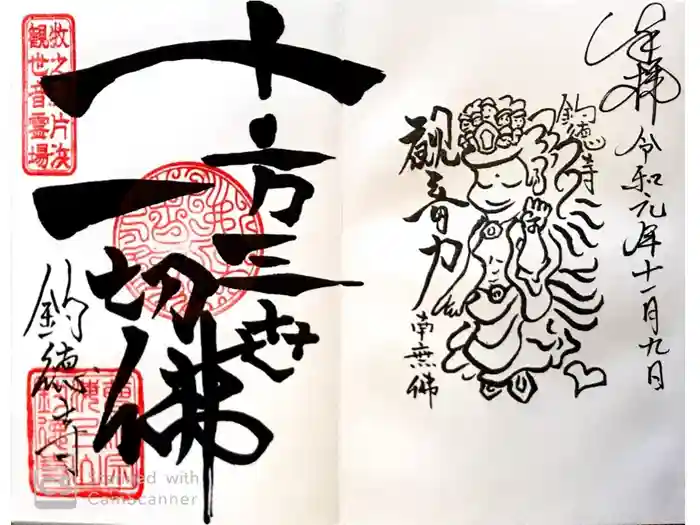 奉拝
令和元年十一月九日
釣徳寺
観音力
南無佛
十方三世
一切佛
釣徳寺
観世音霊場
Scanned with
CamScanner